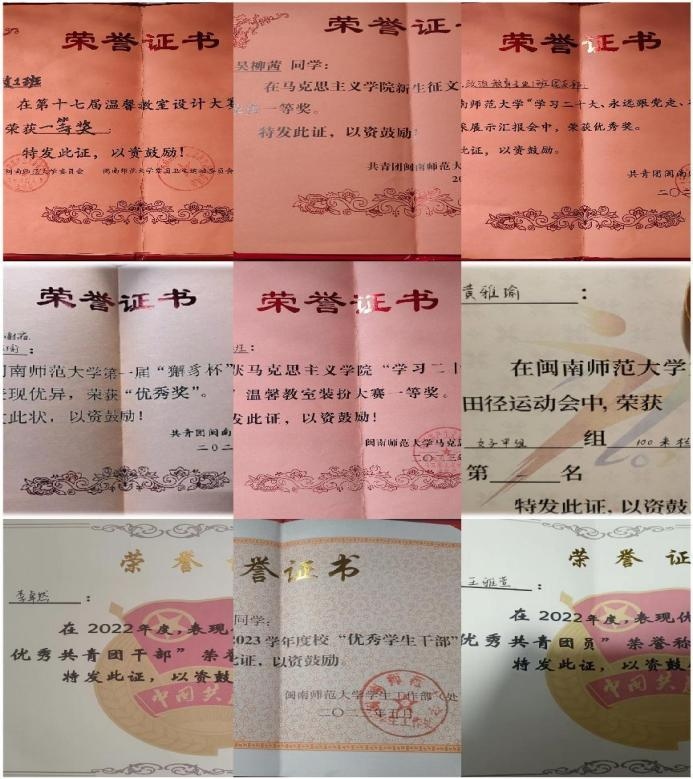 荣誉证书
1班
在第十七届温馨教室设计大赛
荣获一等奖
特发此证，以资鼓励！
闽南师范大学委员会 闽南师范大学爱国卫生运动委员会
荣誉证书
吴柳茜 同学：
在马克思主义学院新生征文
一等奖。
特发此证，以资鼓励
共青团闽南师范大
荣誉证书
南师范大学“学习二十大、永远跟党走、
展示汇报会中，荣获优秀奖。
此证，以资鼓励。
共青团闽南
二〇二
荣誉证书
南师范大学第一届“獬豸杯”
现优异，荣获“优秀奖”。
此状，以资鼓励！
共青团闽南
二〇二
荣誉证书
马克思主义学院“学习二十
温馨教室装扮大赛一等奖。
发此证，以资鼓励！
闽南师范大学马克思
二〇二三
黄雅瑜：
在闽南师范大学
田径运动会中，荣获
女子甲组 组 100米栏
第 一 名
特发此证，以资鼓
荣誉
李卓然：
在2022年度，表现
优秀共青团干部”荣誉
特发此证，以资
中国共
誉证书
同学：
2023学年度校“优秀学生干部”
此证，以资鼓励。
闽南师范大学学生工作部（处
二〇二三年五月
荣誉证
王雅萱：
在2022年度，表现优
优秀共青团员”荣誉称
特发此证，以资鼓
中国共